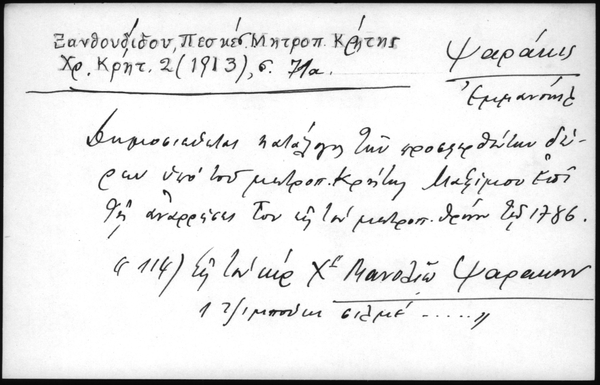 Ξανθουδίδου, Πεσκές Μητροπ. Κρήτης
Χρ. Κρητ. 2 (1913), σ. 71α.
Ψαράκις
Ἐμμανουήλ
Δημοσιεύεται κατάλογος τῶν προσφερθέντων δώ-
ρων ὑπὸ τοῦ μητροπ. Κρήτης Μαξίμου ἐπὶ
τῇ ἀναρρήσει του εἰς τὸν μητροπ. θρόνον τῷ 1786.
"114) Εἰς τὸν κὺρ Χ" Μανολιὸ Ψαράκην
1 τζιμπούκι σιλμέ ....."